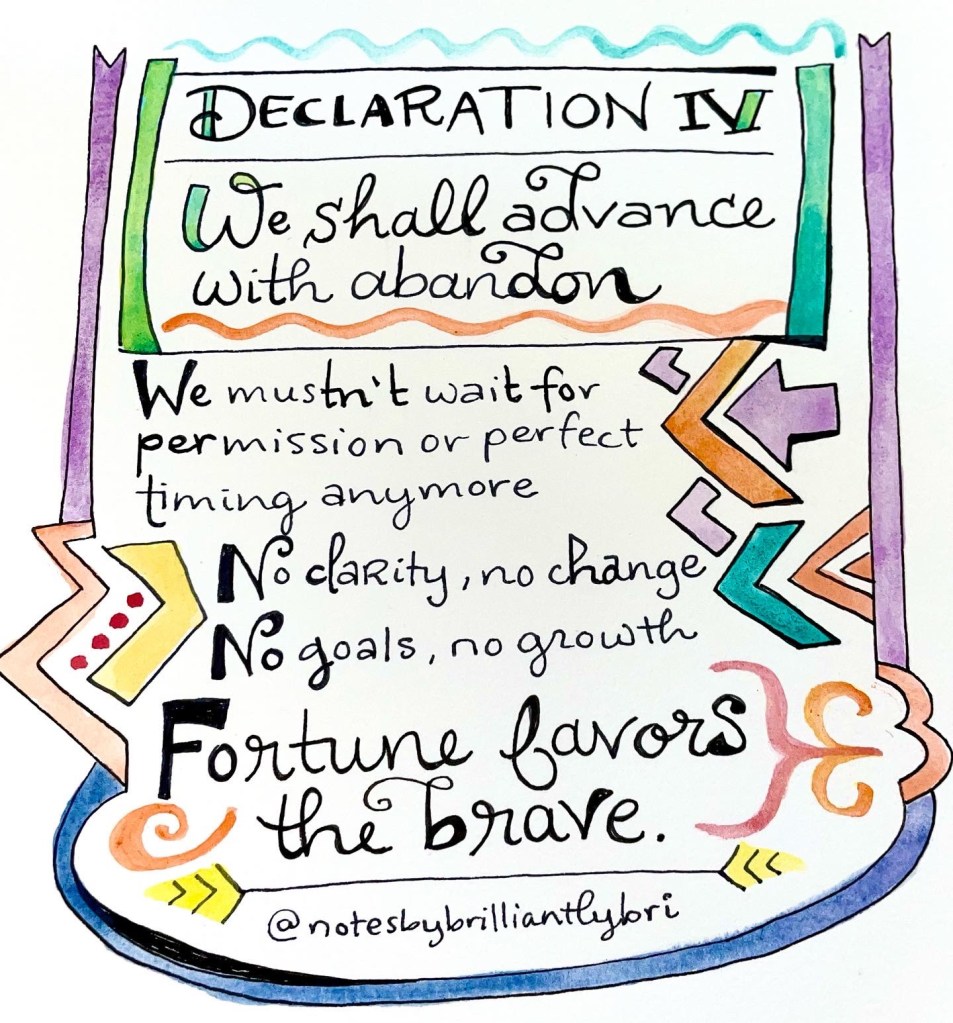 DECLARATION IV
We shall advance
with abandon
We mustn't wait for
permission or perfect
timing anymore
No clarity, no change
No goals, no growth
Fortune favors
the brave.
@notesbybrilliantlybri